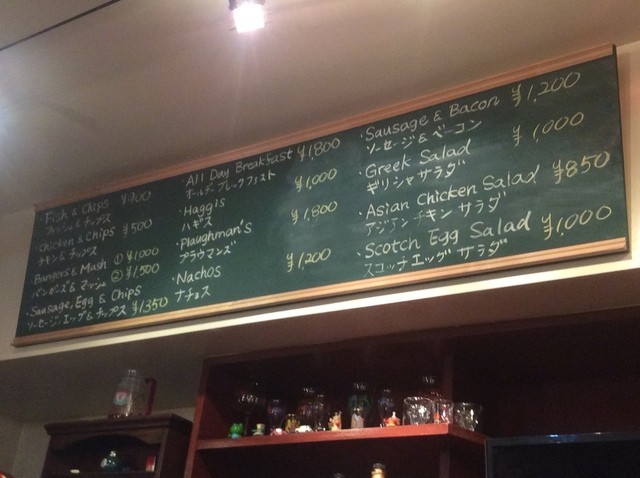 Fish & Chips ¥900
フィッシュ & チップス
Chicken & Chips ¥500
チキン & チップス
Bangers & Mash ① ¥1,000
バンガーズ & マッシュ ② ¥1,500
Sausage, Egg & Chips
ソーセージ, エッグ & チップス ¥1,350
All Day Breakfast ¥1,800
オールデイブレックファスト
・Haggis ¥1,000
ハギス
・Plaughman's ¥1,800
プラウマンズ
・Nachos ¥1,200
ナチョス
・Sausage & Bacon ¥1,200
ソーセージ & ベーコン
・Greek Salad ¥1,000
ギリシャサラダ
・Asian Chicken Salad ¥850
アジアンチキンサラダ
・Scotch Egg Salad ¥1,000
スコッチエッグサラダ